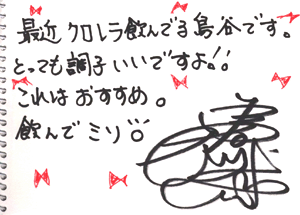 最近クロレラ飲んでる島谷です。
とっても調子いいですよ!!
これはおすすめ。
飲んでミソ